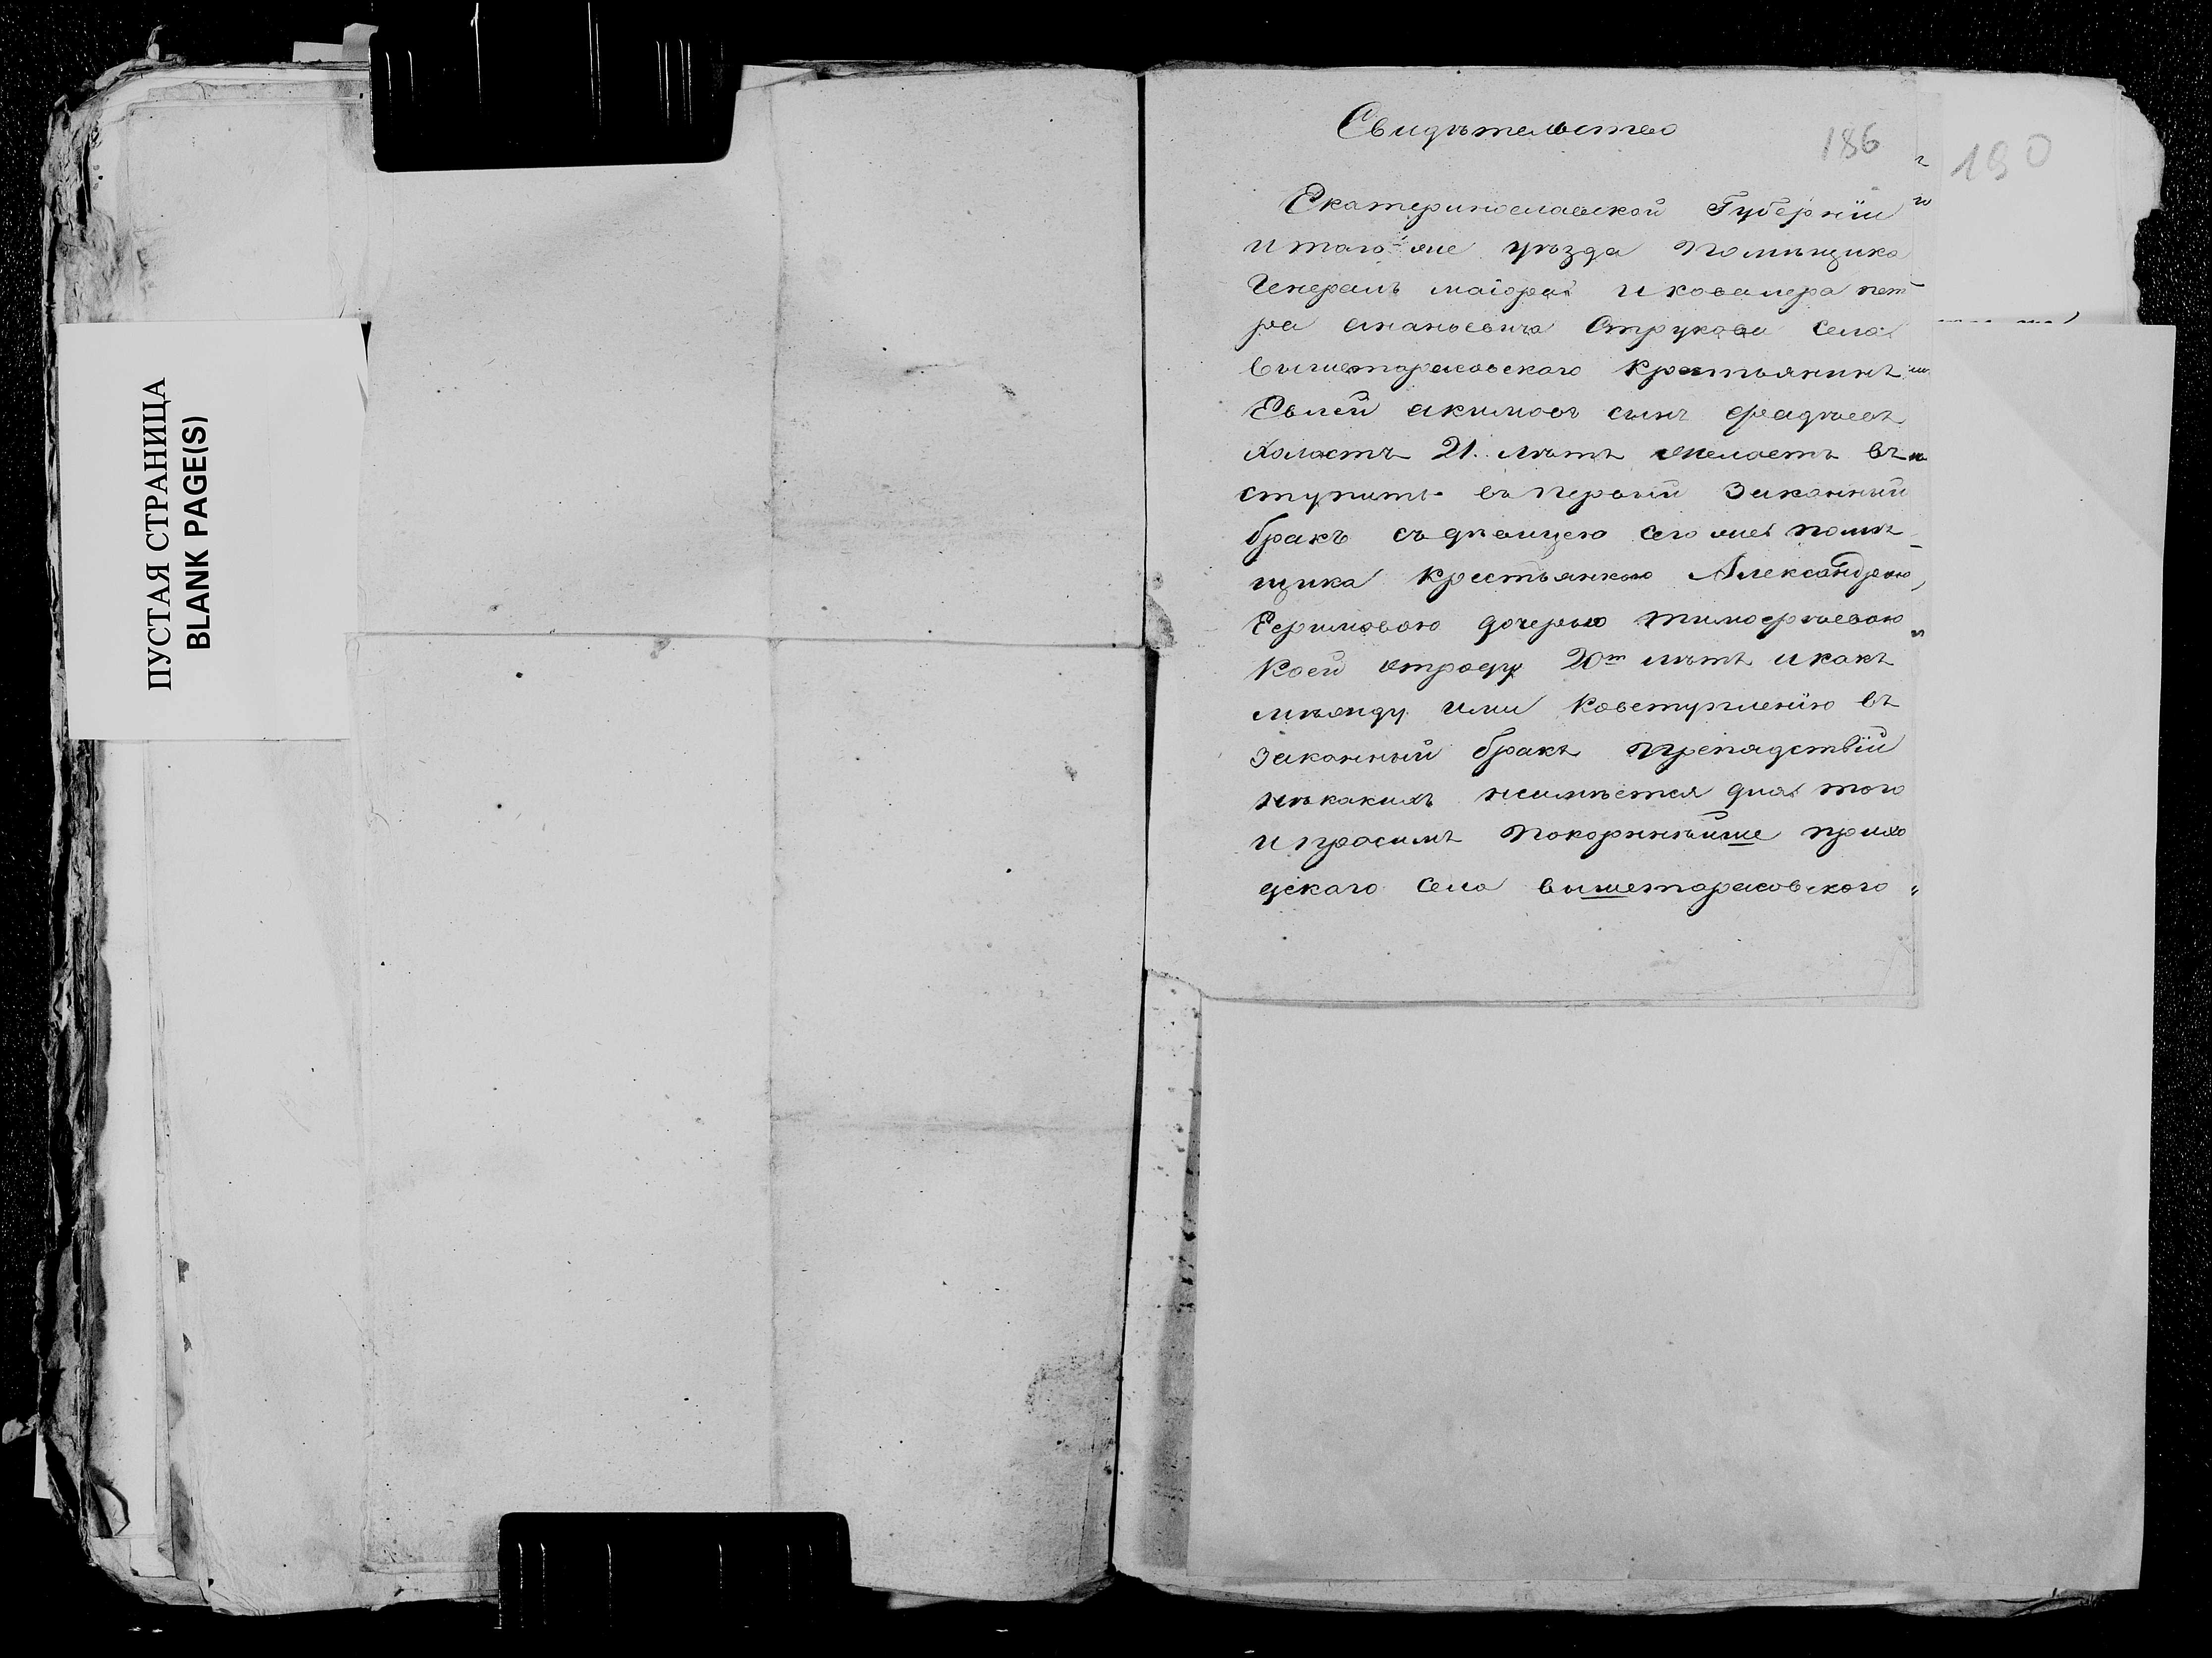 ПУСТАЯ СТРАНИЦА
BLANK PAGE(S)
Свидѣтельство
186
190
Екатеринославской Губернiи
и того же уѣзда помѣщика
Генералъ маiора и ковалера пет
ра ананьевича Струкова села
вышетарасовского крестьянинъ
Евлей акимовъ сынъ фадѣевъ
холостъ 21. лѣтъ желаетъ въ
ступить въ первый Законный
бракъ съ девицею сего же помѣ
щика крестьянкою Александрою,
Ефимовою дочерью тимофѣевою
коей отроду 20т лѣтъ и какъ
междy ими ковступленiю въ
законный бракъ препядствiй
нѣкакихъ неимѣется для того
и просимъ покорнѣйше прихо
дскаго села вышетарасовского